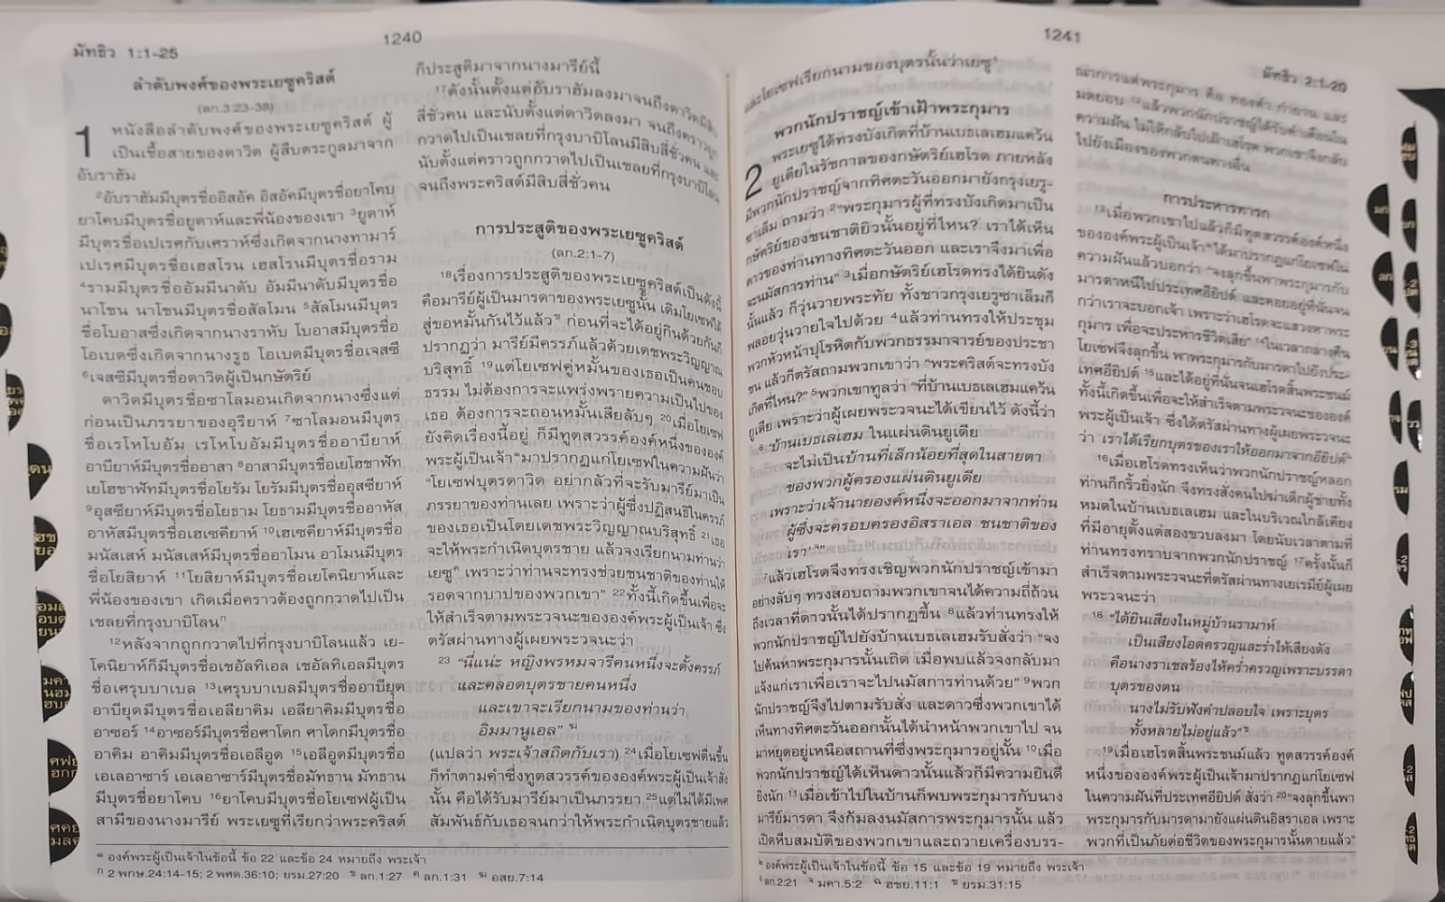 มัทธิว 1:1-25
1240
ลำดับพงศ์ของพระเยซูคริสต์
(ลก.3:23-38)
1 หนังสือลำดับพงศ์ของพระเยซูคริสต์ ผู้
เป็นเชื้อสายของดาวิด ผู้สืบตระกูลมาจาก
อับราฮัม
2อับราฮัมมีบุตรชื่ออิสอัค อิสอัคมีบุตรชื่อยาโคบ
ยาโคบมีบุตรชื่อยูดาห์และพี่น้องของเขา 3ยูดาห์
มีบุตรชื่อเปเรศกับเศราห์ซึ่งเกิดจากนางทามาร์
เปเรศมีบุตรชื่อเฮสโรน เฮสโรนมีบุตรชื่อราม
4รามมีบุตรชื่ออัมมีนาดับ อัมมีนาดับมีบุตรชื่อ
นาโชน นาโชนมีบุตรชื่อสัลโมน 5สัลโมนมีบุตร
ชื่อโบอาสซึ่งเกิดจากนางราหับ โบอาสมีบุตรชื่อ
โอเบดซึ่งเกิดจากนางรูธ โอเบดมีบุตรชื่อเจสซี
6เจสซีมีบุตรชื่อดาวิดผู้เป็นกษัตริย์
ดาวิดมีบุตรชื่อซาโลมอนเกิดจากนางซึ่งแต่
ก่อนเป็นภรรยาของอุรียาห์ 7ซาโลมอนมีบุตร
ชื่อเรโหโบอัม เรโหโบอัมมีบุตรชื่ออาบียาห์
อาบียาห์มีบุตรชื่ออาสา 8อาสามีบุตรชื่อเยโฮชาฟัท
เยโฮชาฟัทมีบุตรชื่อโยรัม โยรัมมีบุตรชื่ออุสซียาห์
9อุสซียาห์มีบุตรชื่อโยธาม โยธามมีบุตรชื่ออาหัส
อาหัสมีบุตรชื่อเฮเซคียาห์ 10เฮเซคียาห์มีบุตรชื่อ
มนัสเสห์ มนัสเสห์มีบุตรชื่ออาโมน อาโมนมีบุตร
ชื่อโยสิยาห์ 11โยสิยาห์มีบุตรชื่อเยโคนิยาห์และ
พี่น้องของเขา เกิดเมื่อคราวต้องถูกกวาดไปเป็น
เชลยที่กรุงบาบิโลนก
12หลังจากถูกกวาดไปที่กรุงบาบิโลนแล้ว เย-
โคนิยาห์ก็มีบุตรชื่อเชอัลทิเอล เชอัลทิเอลมีบุตร
ชื่อเศรุบบาเบล 13เศรุบบาเบลมีบุตรชื่ออาบียุด
อาบียุดมีบุตรชื่อเอลียาคิม เอลียาคิมมีบุตรชื่อ
อาซอร์ 14อาซอร์มีบุตรชื่อศาโดก ศาโดกมีบุตรชื่อ
อาคิม อาคิมมีบุตรชื่อเอลีอูด 15เอลีอูดมีบุตรชื่อ
เอเลอาซาร์ เอเลอาซาร์มีบุตรชื่อมัทธาน มัทธาน
มีบุตรชื่อยาโคบ 16ยาโคบมีบุตรชื่อโยเซฟผู้เป็น
สามีของนางมารีย์ พระเยซูที่เรียกว่าพระคริสต์
ก็ประสูติมาจากนางมารีย์นี้
17ดังนั้นตั้งแต่อับราฮัมลงมาจนถึงดาวิดมีสิบ
สี่ชั่วคน และนับตั้งแต่ดาวิดลงมา จนถึงคราวถูก
กวาดไปเป็นเชลยที่กรุงบาบิโลนมีสิบสี่ชั่วคน และ
นับตั้งแต่คราวถูกกวาดไปเป็นเชลยที่กรุงบาบิโลน
จนถึงพระคริสต์มีสิบสี่ชั่วคน
การประสูติของพระเยซูคริสต์
(ลก.2:1-7)
18เรื่องการประสูติของพระเยซูคริสต์เป็นดังนี้
คือมารีย์ผู้เป็นมารดาของพระเยซูนั้น เดิมโยเซฟได้
สู่ขอหมั้นกันไว้แล้วข ก่อนที่จะได้อยู่กินด้วยกันก็
ปรากฏว่า มารีย์มีครรภ์แล้วด้วยเดชพระวิญญาณ
บริสุทธิ์ 19แต่โยเซฟคู่หมั้นของเธอเป็นคนชอบ
ธรรม ไม่ต้องการจะแพร่งพรายความเป็นไปของ
เธอ ต้องการจะถอนหมั้นเสียลับๆ 20เมื่อโยเซฟ
ยังคิดเรื่องนี้อยู่ ก็มีทูตสวรรค์องค์หนึ่งขององค์
พระผู้เป็นเจ้า มาปรากฏแก่โยเซฟในความฝันว่า
“โยเซฟบุตรดาวิด อย่ากลัวที่จะรับมารีย์มาเป็น
ภรรยาของท่านเลย เพราะว่าผู้ซึ่งปฏิสนธิในครรภ์
ของเธอเป็นโดยเดชพระวิญญาณบริสุทธิ์ 21เธอ
จะให้พระกำเนิดบุตรชาย แล้วจงเรียกนามท่านว่า
เยซูค เพราะว่าท่านจะทรงช่วยชนชาติของท่านให้
รอดจากบาปของพวกเขา” 22ทั้งนี้เกิดขึ้นเพื่อจะ
ให้สำเร็จตามพระวจนะขององค์พระผู้เป็นเจ้า ซึ่ง
ตรัสผ่านทางผู้เผยพระวจนะว่า
23 “นี่แน่ะ หญิงพรหมจารีคนหนึ่งจะตั้งครรภ์
และคลอดบุตรชายคนหนึ่ง
และเขาจะเรียกนามของท่านว่า
อิมมานูเอล” ฆ
(แปลว่า พระเจ้าสถิตกับเรา) 24เมื่อโยเซฟตื่นขึ้น
ก็ทำตามคำซึ่งทูตสวรรค์ขององค์พระผู้เป็นเจ้าสั่ง
นั้น คือได้รับมารีย์มาเป็นภรรยา 25แต่ไม่ได้มีเพศ
สัมพันธ์กับเธอจนกว่าให้พระกำเนิดบุตรชายแล้ว
องค์พระผู้เป็นเจ้าในข้อนี้ ข้อ 22 และข้อ 24 หมายถึง พระเจ้า
ก 2 พกษ.24:14-15; 2 พศด.36:10; ยรม.27:20 ข ลก.1:27 ค ลก.1:31 ฆ อสย.7:14
1241
มัทธิว 2:1-20
และโยเซฟเรียกนามของบุตรนั้นว่าเยซู
พวกนักปราชญ์เข้าเฝ้าพระกุมาร
2 พระเยซูได้ทรงบังเกิดที่บ้านเบธเลเฮมแคว้น
ยูเดียในรัชกาลของกษัตริย์เฮโรด ภายหลัง
มีพวกนักปราชญ์จากทิศตะวันออกมายังกรุงเยรู-
ซาเล็ม ถามว่า 2“พระกุมารผู้ที่ทรงบังเกิดมาเป็น
กษัตริย์ของชนชาติยิวนั้นอยู่ที่ไหน? เราได้เห็น
ดาวของท่านทางทิศตะวันออก และเราจึงมาเพื่อ
จะนมัสการท่าน” 3เมื่อกษัตริย์เฮโรดทรงได้ยินดัง
นั้นแล้ว ก็วุ่นวายพระทัย ทั้งชาวกรุงเยรูซาเล็มก็
พลอยวุ่นวายใจไปด้วย 4แล้วท่านทรงให้ประชุม
พวกหัวหน้าปุโรหิตกับพวกธรรมาจารย์ของประชา
ชน แล้วก็ตรัสถามพวกเขาว่า “พระคริสต์จะทรงบัง
เกิดที่ไหน?” 5พวกเขาทูลว่า “ที่บ้านเบธเลเฮมแคว้น
ยูเดีย เพราะว่าผู้เผยพระวจนะได้เขียนไว้ ดังนี้ว่า
6 ‘บ้านเบธเลเฮม ในแผ่นดินยูเดีย
จะไม่เป็นบ้านที่เล็กน้อยที่สุดในสายตา
ของพวกผู้ครองแผ่นดินยูเดีย
เพราะว่าเจ้านายองค์หนึ่งจะออกมาจากท่าน
ผู้ซึ่งจะครอบครองอิสราเอล ชนชาติของ
เรา’ ”
7แล้วเฮโรดจึงทรงเชิญพวกนักปราชญ์เข้ามา
อย่างลับๆ ทรงสอบถามพวกเขาจนได้ความถี่ถ้วน
ถึงเวลาที่ดาวนั้นได้ปรากฏขึ้น 8แล้วท่านทรงให้
พวกนักปราชญ์ไปยังบ้านเบธเลเฮมรับสั่งว่า “จง
ไปค้นหาพระกุมารนั้นเถิด เมื่อพบแล้วจงกลับมา
แจ้งแก่เราเพื่อเราจะไปนมัสการท่านด้วย” 9พวก
นักปราชญ์จึงไปตามรับสั่ง และดาวซึ่งพวกเขาได้
เห็นทางทิศตะวันออกนั้นได้นำหน้าพวกเขาไป จน
มาหยุดอยู่เหนือสถานที่ซึ่งพระกุมารอยู่นั้น 10เมื่อ
พวกนักปราชญ์ได้เห็นดาวนั้นแล้วก็มีความยินดี
ยิ่งนัก 11เมื่อเข้าไปในบ้านก็พบพระกุมารกับนาง
มารีย์มารดา จึงก้มลงนมัสการพระกุมารนั้น แล้ว
เปิดหีบสมบัติของพวกเขาและถวายเครื่องบรร-
ณาการแด่พระกุมาร คือ ทองคำ กำยาน และ
มดยอบ 12แล้วพวกนักปราชญ์ได้รับคำเตือนใน
ความฝัน ไม่ให้กลับไปเฝ้าเฮโรด พวกเขาจึงกลับ
ไปยังเมืองของพวกตนทางอื่น
การประหารทารก
13เมื่อพวกเขาไปแล้วก็มีทูตสวรรค์องค์หนึ่ง
ขององค์พระผู้เป็นเจ้า ได้มาปรากฏแก่โยเซฟใน
ความฝันแล้วบอกว่า “จงลุกขึ้นพาพระกุมารกับ
มารดาหนีไปประเทศอียิปต์ และคอยอยู่ที่นั่นจน
กว่าเราจะบอกเจ้า เพราะว่าเฮโรดจะแสวงหาพระ
กุมาร เพื่อจะประหารชีวิตเสีย” 14ในเวลากลางคืน
โยเซฟจึงลุกขึ้น พาพระกุมารกับมารดาไปยังประ-
เทศอียิปต์ 15และได้อยู่ที่นั่นจนเฮโรดสิ้นพระชนม์
ทั้งนี้เกิดขึ้นเพื่อจะให้สำเร็จตามพระวจนะขององค์
พระผู้เป็นเจ้า ซึ่งได้ตรัสผ่านทางผู้เผยพระวจนะ
ว่า “เราได้เรียกบุตรของเราให้ออกมาจากอียิปต์”
16เมื่อเฮโรดทรงเห็นว่าพวกนักปราชญ์หลอก
ท่านก็กริ้วยิ่งนัก จึงทรงสั่งคนไปฆ่าเด็กผู้ชายทั้ง
หมดในบ้านเบธเลเฮม และในบริเวณใกล้เคียง
ที่มีอายุตั้งแต่สองขวบลงมา โดยนับเวลาตามที่
ท่านทรงทราบจากพวกนักปราชญ์ 17ครั้งนั้นก็
สำเร็จตามพระวจนะที่ตรัสผ่านทางเยเรมีย์ผู้เผย
พระวจนะว่า
18 “ได้ยินเสียงในหมู่บ้านรามาห์
เป็นเสียงโอดครวญและร่ำไห้เสียงดัง
คือนางราเชลร้องไห้คร่ำครวญเพราะบรรดา
บุตรของตน
นางไม่รับฟังคำปลอบใจ เพราะบุตร
ทั้งหลายไม่อยู่แล้ว”
19เมื่อเฮโรดสิ้นพระชนม์แล้ว ทูตสวรรค์องค์
หนึ่งขององค์พระผู้เป็นเจ้ามาปรากฏแก่โยเซฟ
ในความฝันที่ประเทศอียิปต์ สั่งว่า 20“จงลุกขึ้นพา
พระกุมารกับมารดามายังแผ่นดินอิสราเอล เพราะ
พวกที่เป็นภัยต่อชีวิตของพระกุมารนั้นตายแล้ว”
องค์พระผู้เป็นเจ้าในข้อนี้ ข้อ 15 และข้อ 19 หมายถึง พระเจ้า
ลก.2:21 มคา.5:2 ฉ ฮชย.11:1 ช ยรม.31:15